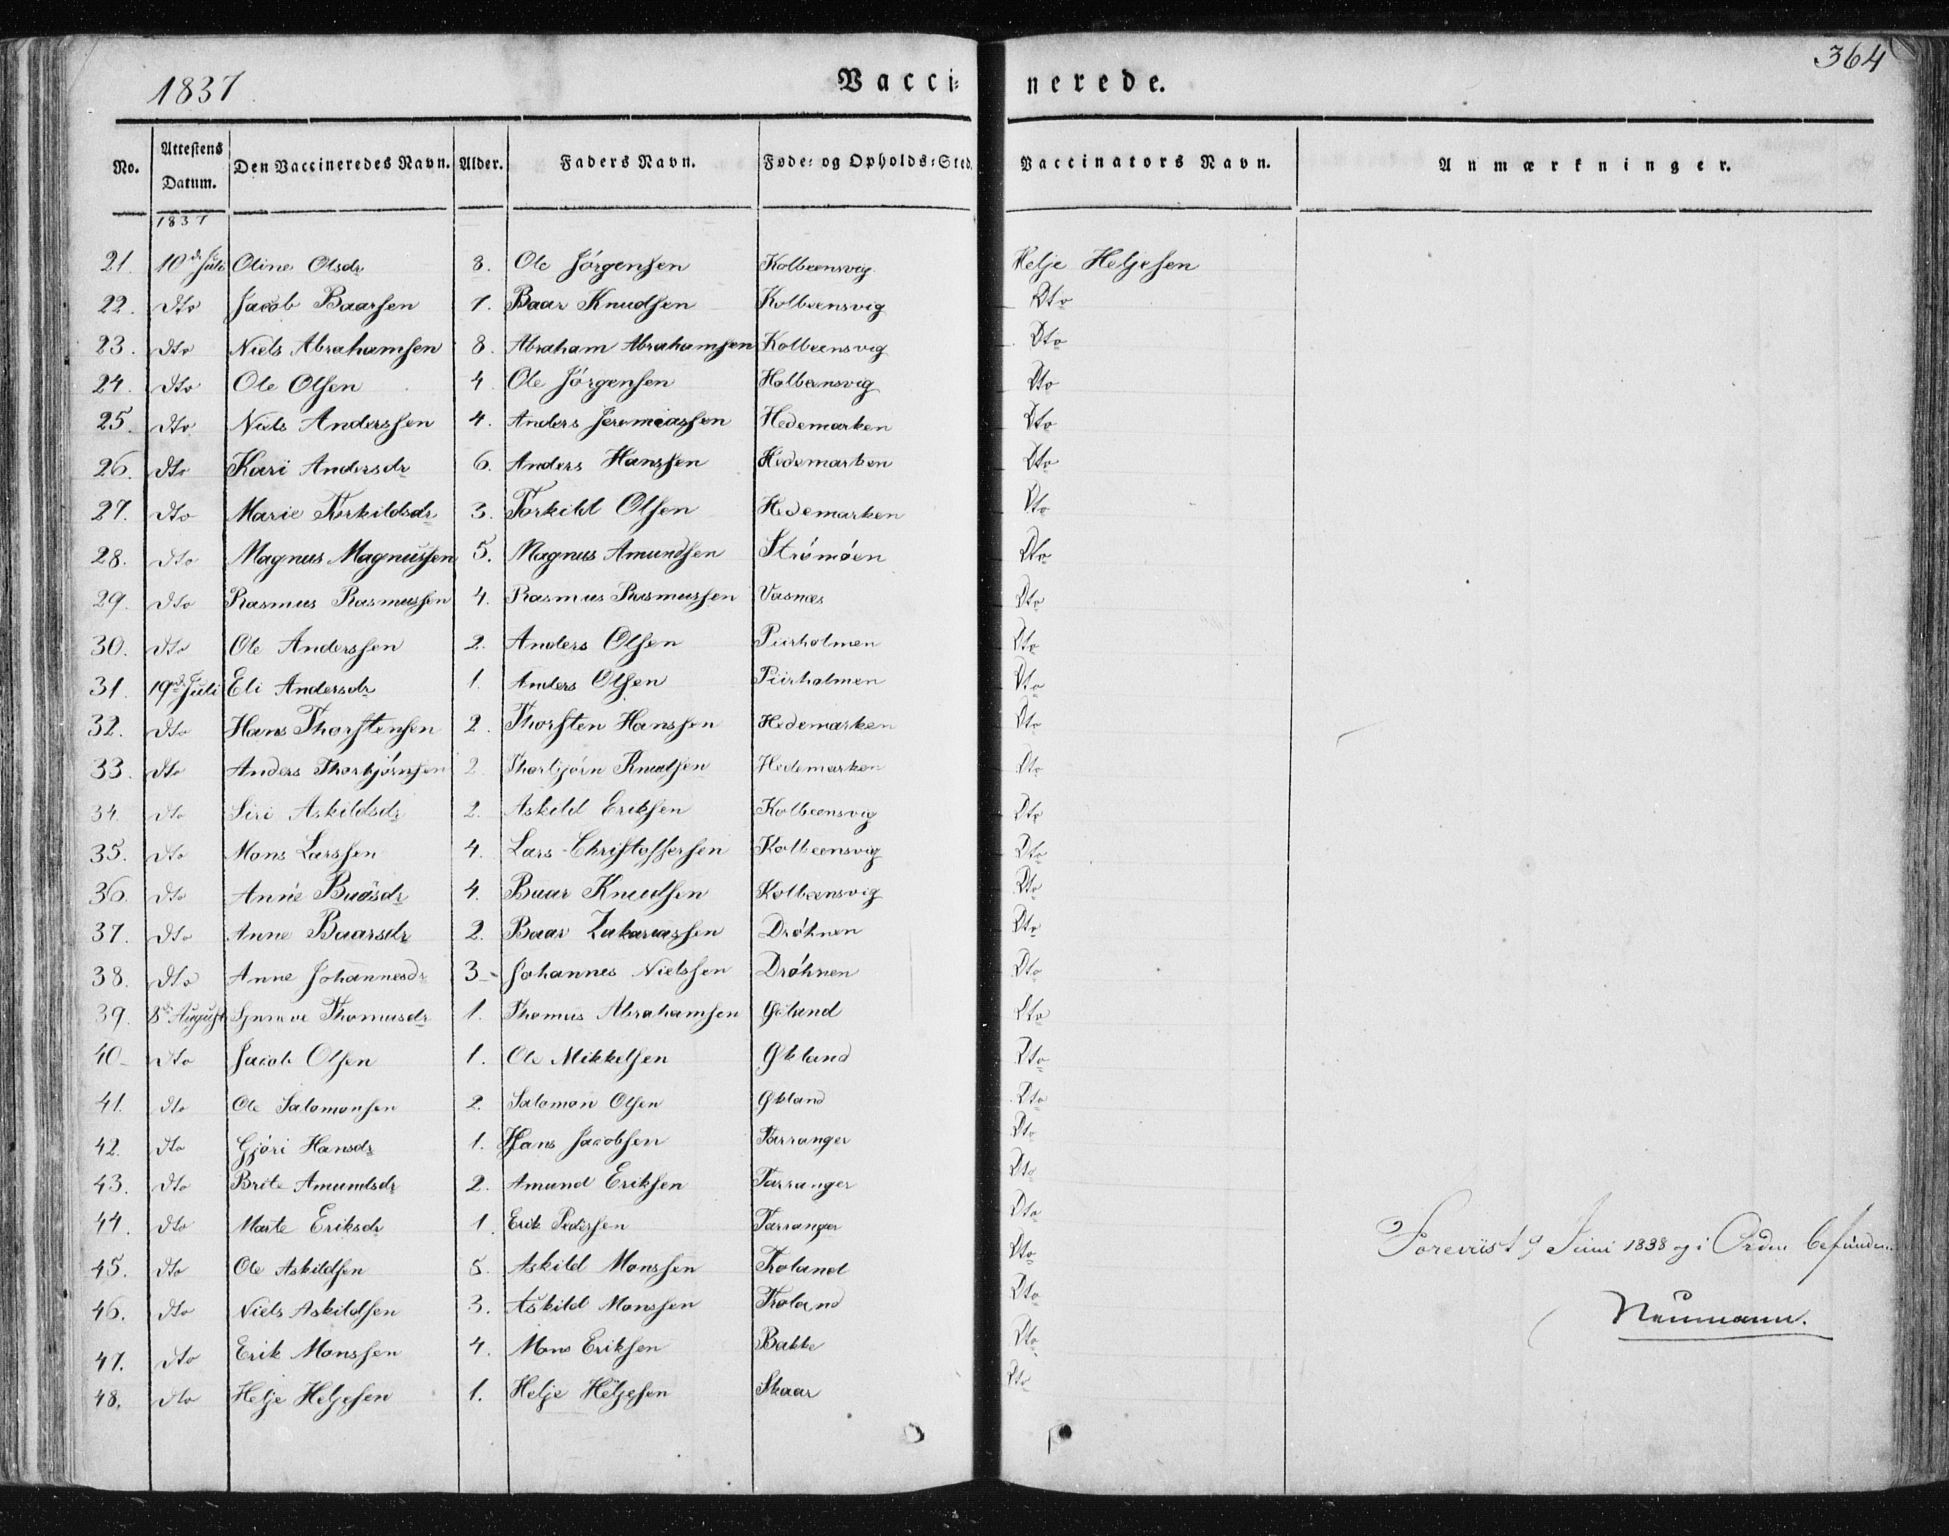 364
1837 Vacci= nerede.
No. Attestens Datum. Den Vaccineredes Navn. Alder. Faders Navn. Føde= og Opholds=Sted. Vaccinators Navn. Anmærkninger.
1837
21. 10de Juli Oline Olsdr 8. Ole Jörgensen Kolbeensvig Helje Heljesen
22. dto Jacob Baarsen 7. Baar Knudsen Kolbeensvig Dto
23. dto Niels Abrahamsen 8. Abraham Abrahamsen Kolbeensvig Dto
24. dto Ole Olsen 4. Ole Jörgensen Kolbeensvig Dto
25. dto Niels Anderssen 4. Anders Jeremiassen Hedemarken Dto
26. dto Kari Andersdr 6. Anders Hanssen Hedemarken Dto
27. dto Marie Torkildsdr 3. Torkild Olsen Hedemarken Dto
28. dto Magnus Magnussen 5. Magnus Amundsen Strömöen Dto
29. dto Rasmus Rasmussen 4. Rasmus Rasmussen Vasnæs Dto
30. dto Ole Anderssen 2. Anders Olsen Piirholmen Dto
31. 19de Juli Eli Andersdr 1. Anders Olsen Piirholmen Dto
32. dto Hans Thorstensen 2. Thorsten Hanssen Hedemarken Dto
33. dto Anders Thorbjörnsen 2. Thorbjörn Knudsen Hedemarken Dto
34. dto Siri Askildsdr 2. Askild Eriksen Kolbeensvig Dto
35. dto Mons Larssen 4. Lars Christoffersen Kolbeensvig Dto
36. dto Anne Baarsdr 4. Baar Knudsen Kolbeensvig Dto
37. dto Anne Baarsdr 2. Baar Zakariassen Dröhnen Dto
38. dto Anne Johannesdr 3. Johannes Nielssen Dröhnen Dto
39. 8de August Thomasdr 1. Thomas Abrahamsen Dto
40. dto Jacob Olsen 1. Ole Mikkelsen Økland Dto
41. dto Ole Salomonsen 2. Salomon Olsen Økland Dto
42. dto Gjöri Hansdr 1. Hans Jacobsen Tarranger Dto
43. dto Brite Amundsdr 2. Amund Eriksen Tarranger Dto
44. dto Marte Eriksdr 1. Erik Pederssen Tarranger Dto
45. dto Ole Askildsen 5. Askild Monssen Troland Dto
46. dto Niels Askildsen 3. Askild Monssen Troland Dto
47. dto Erik Monssen 4. Mons Eriksen Bakke Dto
48. dto Helje Heljesen 1. Helje Heljesen Skaar Dto
Foreviist 9 Juni 1838 og i Orden befunden
Neumann.